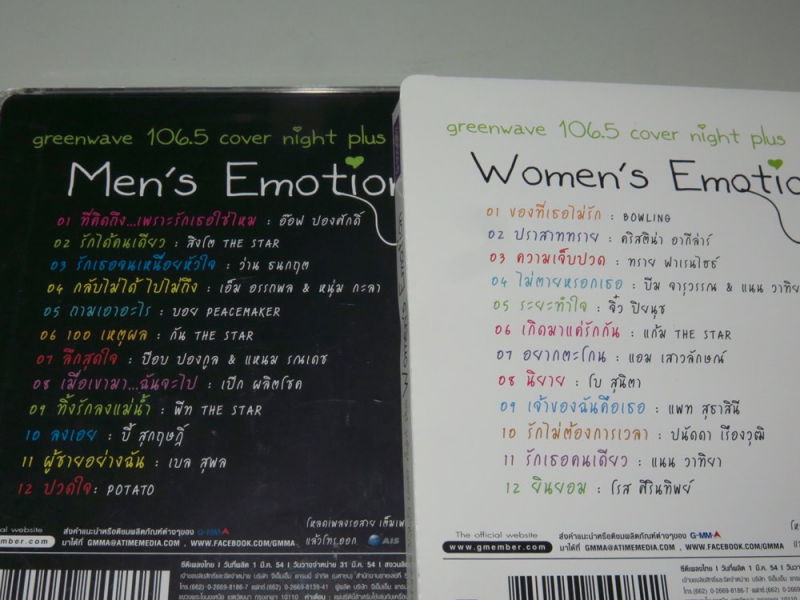 greenwave 106.5 cover night plus
Men's Emotion
01 ที่คิดถึง...เพราะรักเธอใช่ไหม : อ๊อฟ ปองศักดิ์
02 รักได้คนเดียว : สิงโต THE STAR
03 รักเธอจนเหนื่อยหัวใจ : ว่าน ธนกฤต
04 กลับไม่ได้ ไปไม่ถึง : เอ็ม อรรถพล & หนุ่ม กะลา
05 ถามเอาอะไร : บอย PEACEMAKER
06 100 เหตุผล : กัน THE STAR
07 ลึกสุดใจ : ป๊อบ ปองกูล & แหนม รณเดช
08 เมื่อเขามา...ฉันจะไป : เป๊ก ผลิตโชค
09 ทิ้งรักลงแม่น้ำ : พีท THE STAR
10 ลงเอย : บี้ สุกฤษฎิ์
11 ผู้ชายอย่างฉัน : เบล สุพล
12 ปวดใจ : POTATO
โหลดเพลงรอสาย เต็มเพ
official website
ember.com
ส่งคำแนะนำหรือติชมผลิตภัณฑ์ต่างๆของ G-MM-A
มาได้ที่ GMMA@ATIMEMEDIA.COM, WWW.FACEBOOK.COM/GMMA
แล้วโทรออก AIS
ซีดีเพลงไทย | วันที่ผลิต 1 มี.ค. 54 | วันวางจำหน่าย 31 มี.ค. 54 | สงวนลิ
Women's Emotion
greenwave 106.5 cover night plus
Women's Emotio
01 ของที่เธอไม่รัก : BOWLING
02 ปราสาททราย : คริสติน่า อากีล่าร์
03 ความเจ็บปวด : ทราย ฟาเรนไฮธ์
04 ไม่ตายหรอกเธอ : บีม จารุวรรณ & แนน วาทิย
05 ระยะทำใจ : จิ๋ว ปิยนุช
06 เกิดมาแค่รักกัน : แก้ม THE STAR
07 อยากตะโกน : แอม เสาวลักษณ์
08 นิยาย : โบ สุนิตา
09 เจ้าของฉันคือเธอ : แพท สุธาสินี
10 รักไม่ต้องการเวลา : ปนัดดา เรืองวุฒิ
11 รักเธอคนเดียว : แนน วาทิยา
12 ยินยอม : โรส ศิรินทิพย์
โหลดเพลงร
The official website
www.gmember.com
ส่งคำแนะนำหรือติชมผลิตภัณฑ์ต่างๆของ G-MM-A
มาได้ที่ GMMA@ATIMEMEDIA.COM, WWW.FACEBOOK.COM/GMMA
แล้วโทรออ
ซีดีเพลงไทย | วันที่ผลิต 1 มี.ค. 54 | วันว